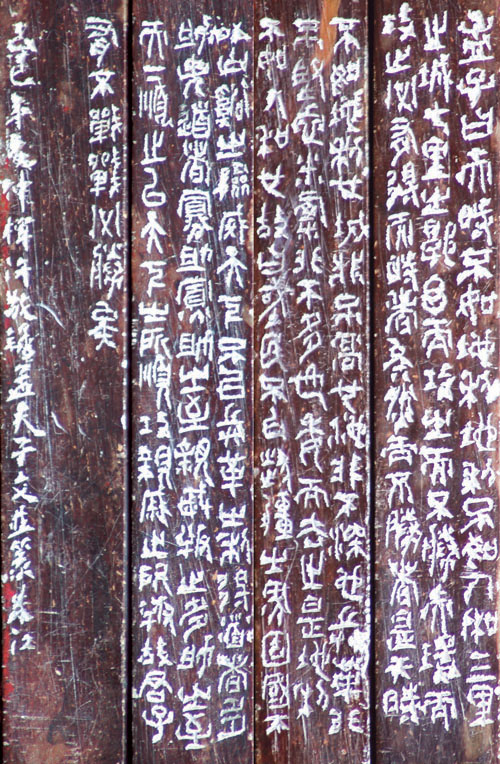 孟子曰天時不如地利地利不如人和三里
之城七里之郭而攻之而不勝夫環而
攻之必有得天時者矣然而不勝者是天時
不如地利也城非不高也池非不深也兵革非
不堅米粟非不多也委而去之是地利
不如人和也故曰域民不以封疆之界固國不
以山谿之險威天下不以兵革之利得道者多
助失道者寡助寡助之至親戚畔之多助之至
天下順之以天下之所順攻親戚之所畔故君子
有不戰戰必勝矣
巳年仲孟夫子文並篆